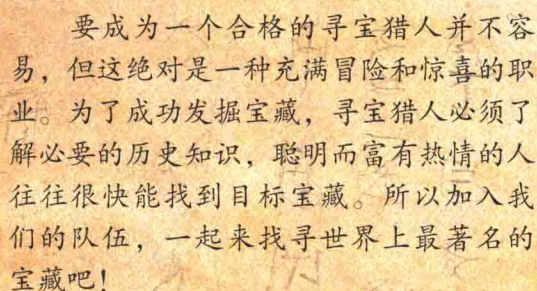 要成为一个合格的寻宝猎人并不容
易，但这绝对是一种充满冒险和惊喜的职
业。为了成功发掘宝藏，寻宝猎人必须了
解必要的历史知识，聪明而富有热情的人
往往很快能找到目标宝藏。所以加入我
们的队伍，一起来找寻世界上最著名的
宝藏吧！